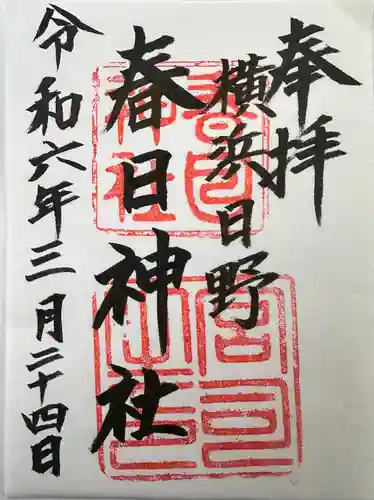 奉拝
横浜日野
春日神社
令和六年三月二十四日
春日神社